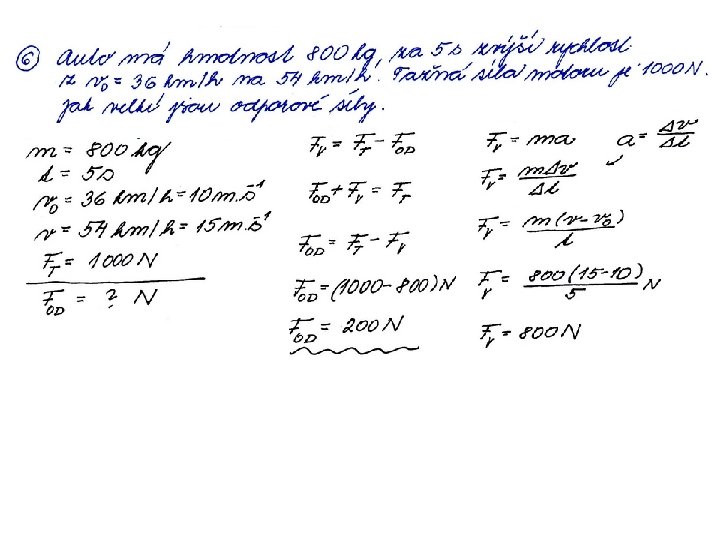 ⑥ Auto má hmotnost 800 kg, za 5 s zvýší rychlost
z v₀ = 36 km/h na 54 km/h. Tažná síla motoru je 1000 N.
Jak velké jsou odporové síly.
m = 800 kg
t = 5 s
v₀ = 36 km/h = 10 m.s⁻¹
v = 54 km/h = 15 m.s⁻¹
F_T = 1000 N
F_OD = ? N
F_V = F_T − F_OD
F_OD + F_V = F_T
F_OD = F_T − F_V
F_OD = (1000 − 800) N
F_OD = 200 N
F_V = ma a = Δv/Δt
F_V = mΔv/Δt
F_V = m(v − v₀)/t
F_V = 800(15−10)/5 N
F_V = 800 N